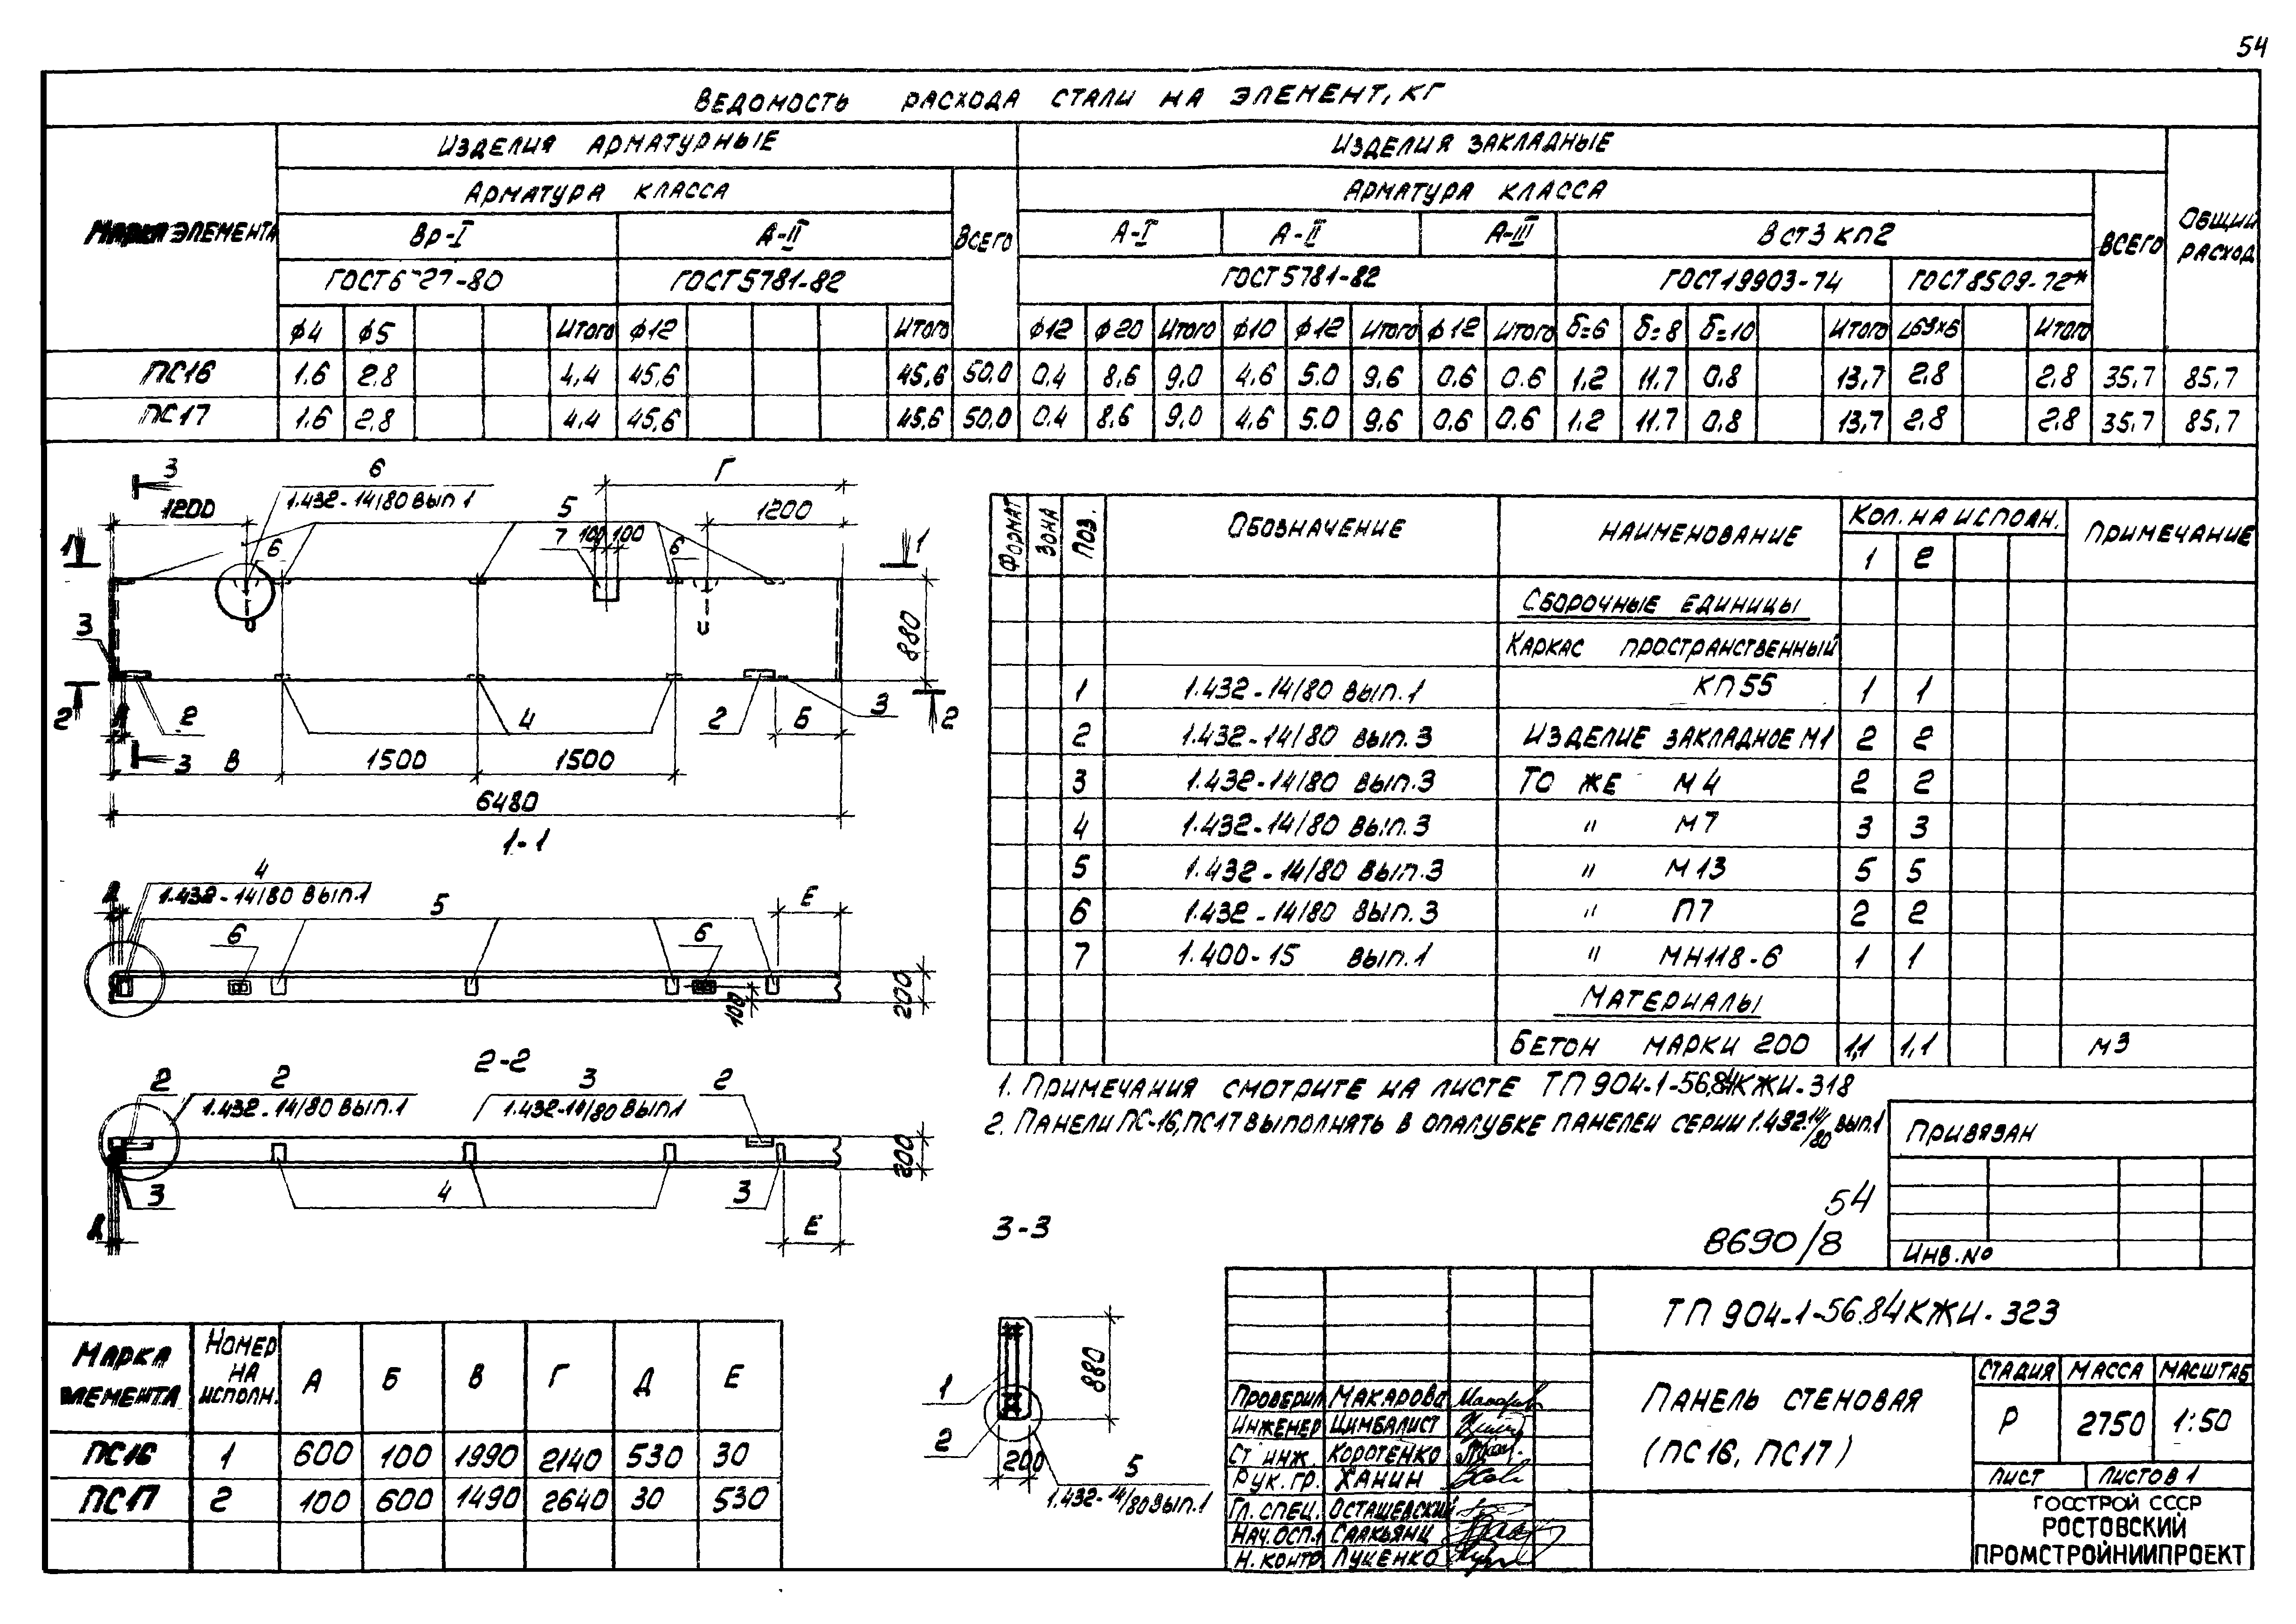 54
Ведомость расхода стали на элемент, кг
Марка элемента
Изделия арматурные
Изделия закладные
Общий расход
Арматура класса
Всего
Арматура класса
Всего
Вр-I
А-II
А-I
А-II
А-III
Вст3 кп2
ГОСТ 6727-80
ГОСТ 5781-82
ГОСТ 5781-82
ГОСТ 19903-74
ГОСТ 8509-72*
ф4 ф5 Итого ф12 Итого ф12 ф20 Итого ф10 ф12 Итого ф12 Итого δ=6 δ=8 δ=10 Итого Итого
ПС16 1.6 2.8 4,4 45,6 45,6 50,0 0.4 8,6 9,0 4,6 5.0 9,6 0.6 0.6 1,2 11.7 0,8 13,7 2,8 2,8 35,7 85,7
ПС17 1.6 2,8 4,4 45,6 45,6 50,0 0.4 8,6 9,0 4,6 5.0 9,6 0,6 0,6 1,2 11.7 0,8 13,7 2,8 2,8 35,7 85,7
3
6
Г
1.432-14/80 вып 1
1200
5
1200
7
100 100
1
6
6
1
3
880
2
2
4
2
Б
3
2
3
В
1500
1500
6480
1-1
4
1.432-14/80 вып.1
5
Е
6
6
200
100
2-2
2
2
3
2
1.432-14/80 вып.1
1.432-14/80 вып 1
200
3
4
3
Е
3-3
1
2
880
200
5
1.432-14/80 вып.1
Формат Зона Поз. Обозначение Наименование Кол. на исполн. Примечание
1 2
Сборочные единицы
Каркас пространственный
1 1.432-14/80 вып.1 КП55 1 1
2 1.432-14/80 вып.3 Изделие закладное М1 2 2
3 1.432-14/80 вып.3 То же М4 2 2
4 1.432-14/80 вып.3 " М7 3 3
5 1.432-14/80 вып.3 " М13 5 5
6 1.432-14/80 вып.3 " П7 2 2
7 1.400-15 вып.1 " МН118-6 1 1
Материалы
Бетон марки 200 1,1 1,1 м3
1. Примечания смотрите на листе ТП 904-1-56.84 КЖИ-318
2. Панели ПС-16, ПС17 выполнять в опалубке панелей серии 1.432-14/80 вып.1
Привязан
Инв. №
54
8690/8
Марка элемента Номер на исполн. А Б В Г Д Е
ПС16 1 600 100 1990 2140 530 30
ПС17 2 100 600 1490 2640 30 530
ТП 904-1-56.84 КЖИ-323
Панель стеновая
(ПС16, ПС17)
Стадия Масса Масштаб
Р 2750 1:50
Лист Листов 1
Госстрой СССР
Ростовский
Промстройниипроект
Проверил Макарова
Инженер Цимбалист
Ст инж. Коротенко
Рук. гр. Ханин
Гл. спец. Осташевский
Нач. осп.1 Саакьянц
Н. контр. Луценко